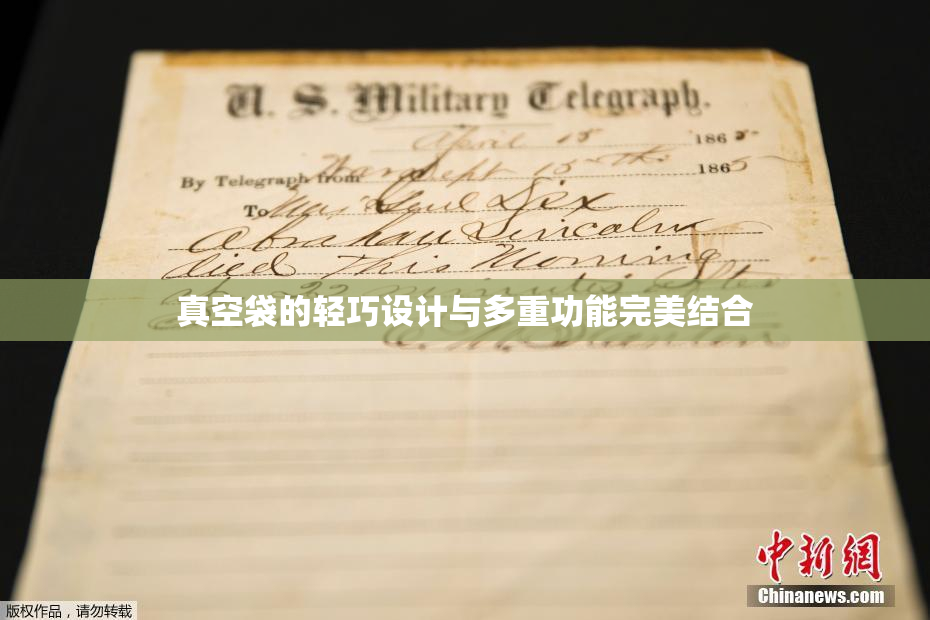 U. S. Military Telegraph.
April 15 1865
By Telegraph from War Dept 15th 1865
To Maj Genl Dix
Abraham Lincoln
died This Morning
at 22 minutes after
真空袋的轻巧设计与多重功能完美结合
E. M. Stanton
中新網
Chinanews.com
版权作品，请勿转载